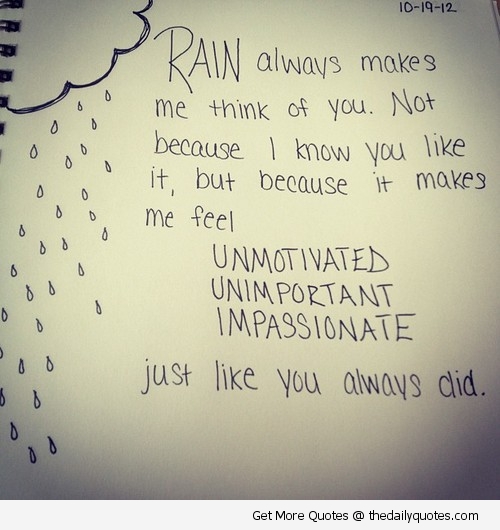 10-19-12
RAIN always makes
me think of you. Not
because I know you like
it, but because it makes
me feel
UNMOTIVATED
UNIMPORTANT
IMPASSIONATE
just like you always did.
Get More Quotes @ thedailyquotes.com